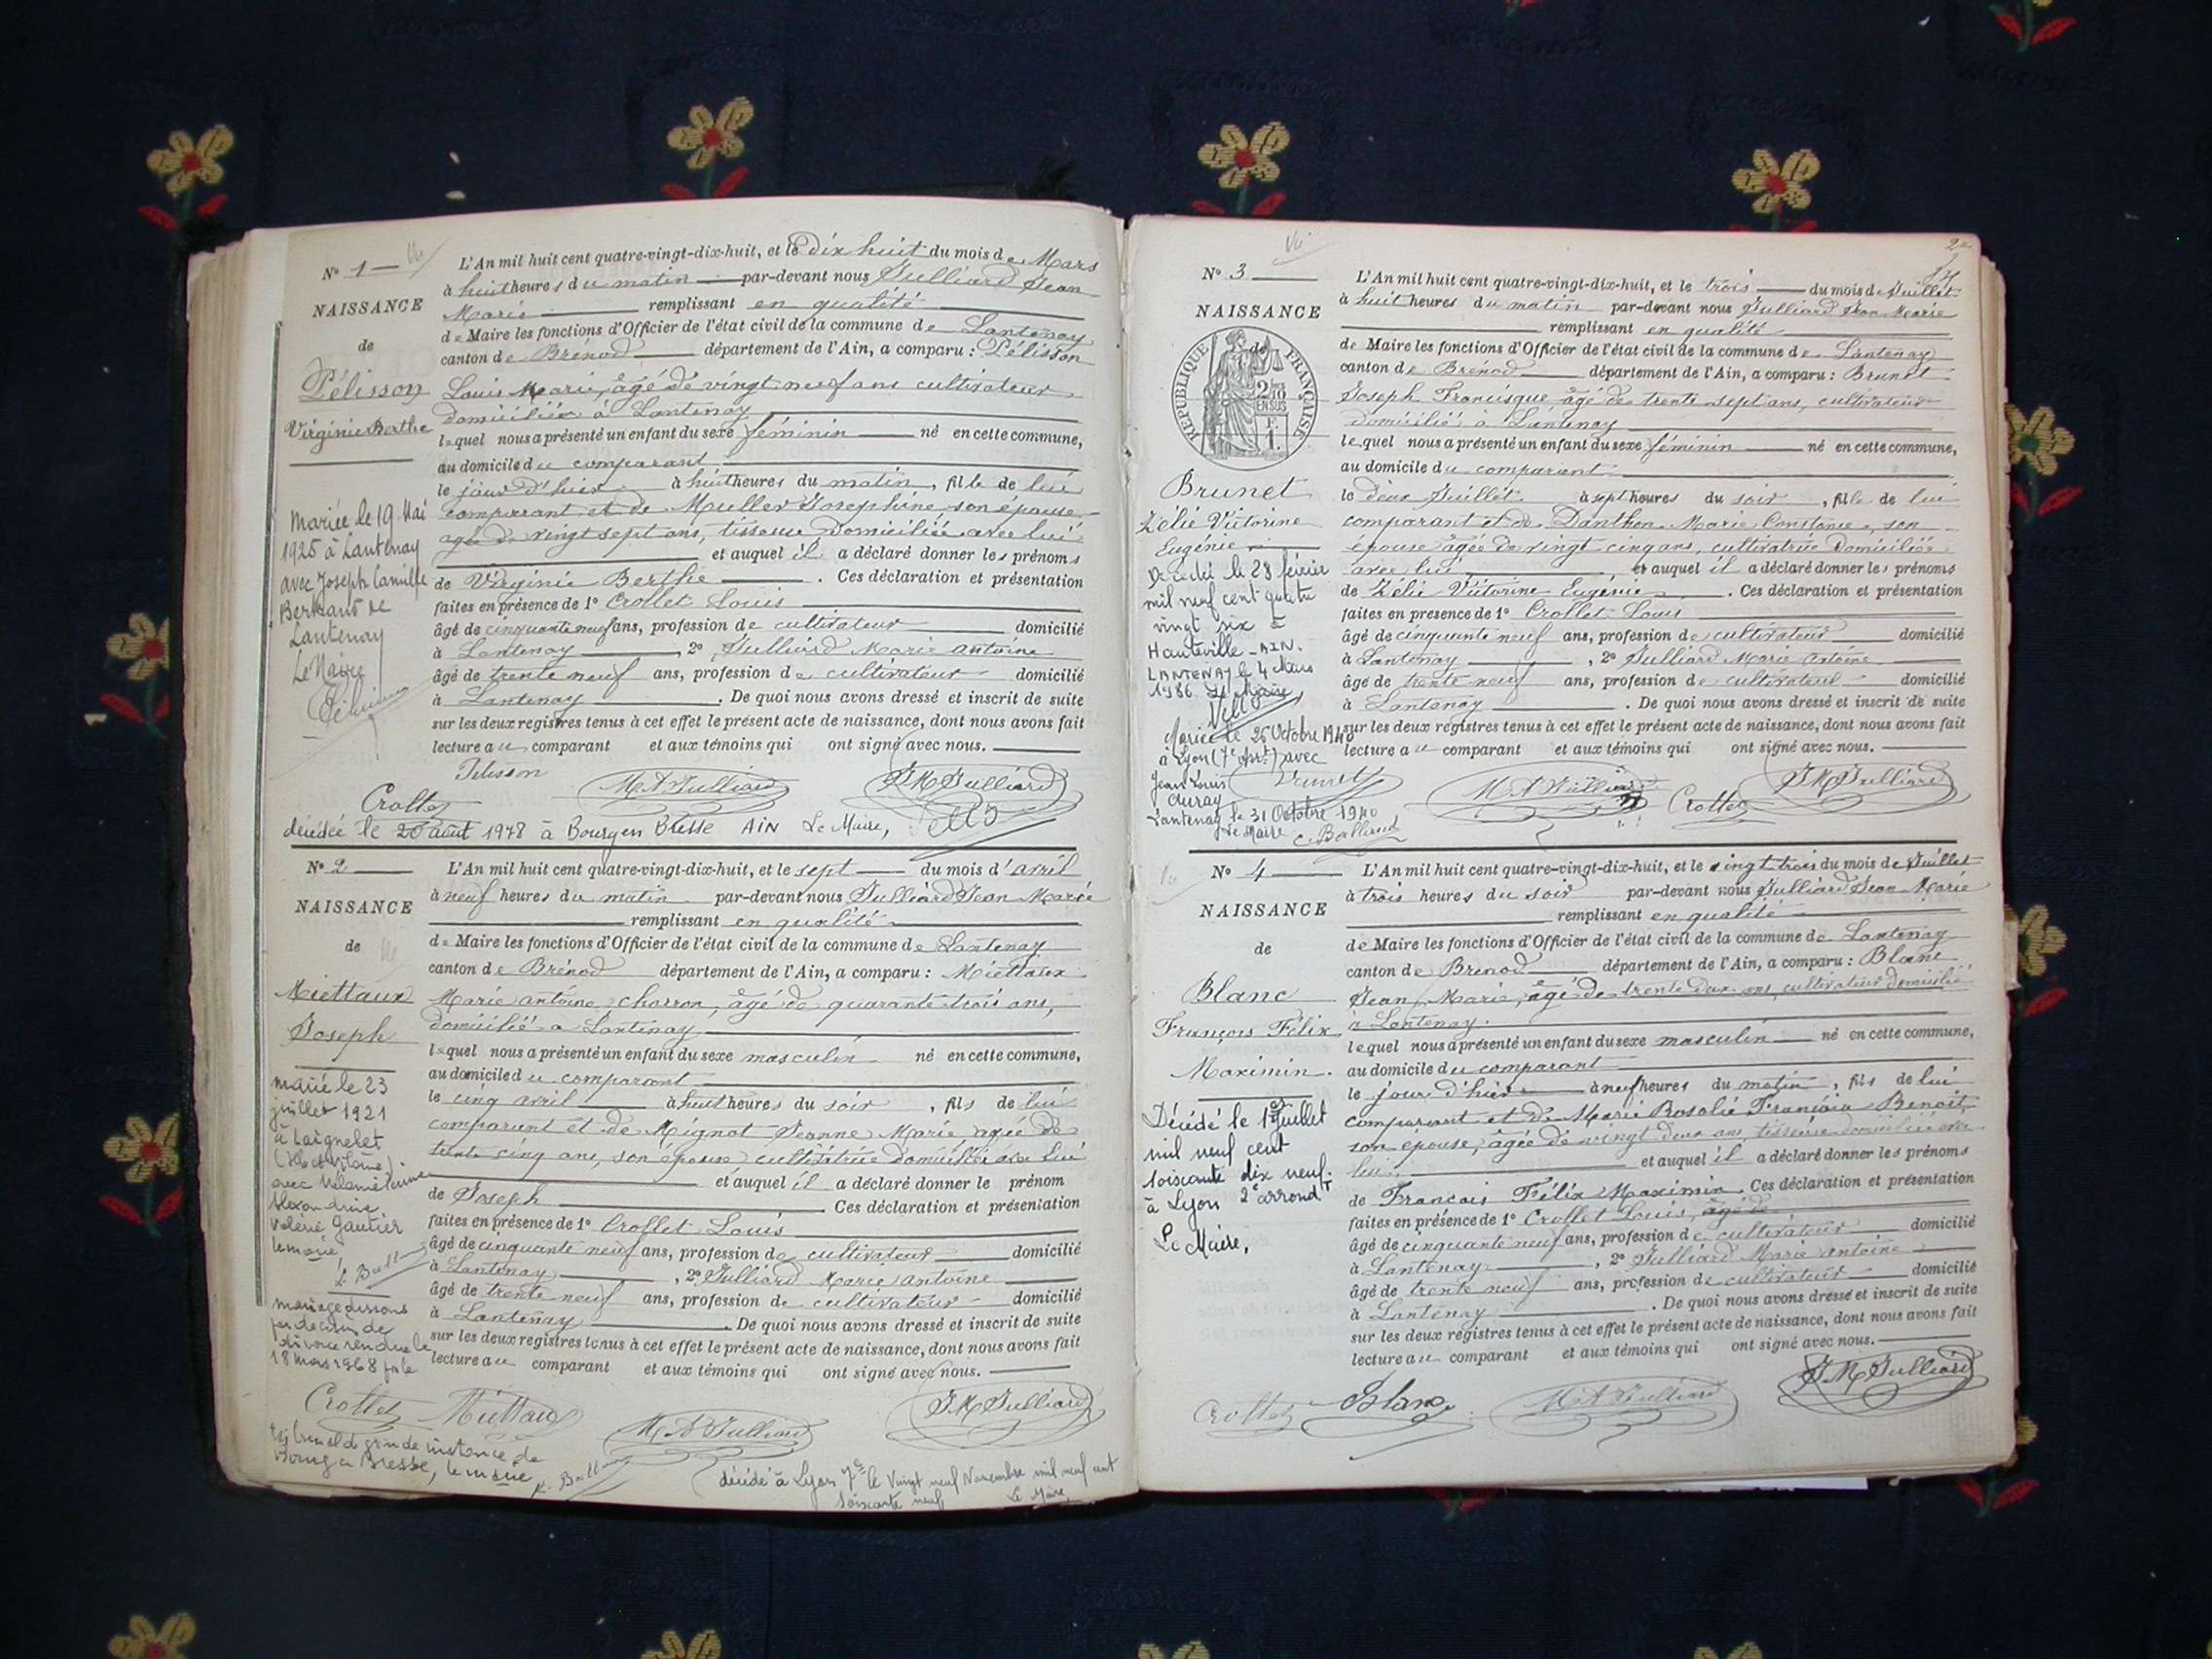 N° 1
NAISSANCE
de
Pélisson
Virginie Berthe
Mariée le 19 Mai
1925 à Lantenay
avec Joseph Camille
de
Lantenay
Le Maire
L'An mil huit cent quatre-vingt-dix-huit, et le dix huit du mois de Mars
à huit heures du matin par-devant nous Julliard Jean
Marie remplissant en qualité
de Maire les fonctions d'Officier de l'état civil de la commune de Lantenay
canton de Brénod département de l'Ain, a comparu : Pélisson
Louis Marie, âgé de vingt neuf ans cultivateur
domicilié à Lantenay
lequel nous a présenté un enfant du sexe féminin né en cette commune,
au domicile du comparant
le jour d'hier à huit heures du matin, fille de lui
comparant et de Muller Josephine son épouse
agée de vingt sept ans, tisseuse domiciliée avec lui
et auquel il a déclaré donner les prénoms
de Virginie Berthe . Ces déclaration et présentation
faites en présence de 1° Crollet Louis
âgé de cinquante neuf ans, profession de cultivateur domicilié
à Lantenay , 2° Julliard Marie antoine
âgé de trente neuf ans, profession de cultivateur domicilié
à Lantenay . De quoi nous avons dressé et inscrit de suite
sur les deux registres tenus à cet effet le présent acte de naissance, dont nous avons fait
lecture au comparant et aux témoins qui ont signé avec nous.
Pelisson
M A Julliard
J M Julliard
Crollet
décédée le 20 août 1978 à Bourg en Bresse AIN Le Maire,
N° 2
NAISSANCE
de
Miettaux
Joseph
marié le 23
juillet 1921
à Laignelet
avec Mélanie
Alexandrine
Valérie Gautier
le maire
mariage dissous
par décision de
divorce rendue le
18 mars 1968 par le
L'An mil huit cent quatre-vingt-dix-huit, et le sept du mois d'avril
à neuf heures du matin par-devant nous Julliard Jean Marie
remplissant en qualité
de Maire les fonctions d'Officier de l'état civil de la commune de Lantenay
canton de Brénod département de l'Ain, a comparu : Miettaux
Marie antoine, charron, âgé de quarante trois ans,
domicilié a Lantenay
lequel nous a présenté un enfant du sexe masculin né en cette commune,
au domicile du comparant
le cinq avril à huit heures du soir , fils de lui
comparant et de Mignot Jeanne Marie agée de
trente cinq ans, son épouse cultivatrice domiciliée avec lui
et auquel il a déclaré donner le prénom
de Joseph Ces déclaration et présentation
faites en présence de 1° Crollet Louis
âgé de cinquante neuf ans, profession de cultivateur domicilié
à Lantenay , 2° Julliard Marie antoine
âgé de trente neuf ans, profession de cultivateur domicilié
à Lantenay . De quoi nous avons dressé et inscrit de suite
sur les deux registres tenus à cet effet le présent acte de naissance, dont nous avons fait
lecture au comparant et aux témoins qui ont signé avec nous.
Crollet Miettaux
M A Julliard
J M Julliard
tribunal de grande instance de
Bourg en Bresse, le maire
décédé à Lyon 7e le Vingt neuf Novembre mil neuf cent
soixante neuf Le Maire
N° 3
NAISSANCE
de
RÉPUBLIQUE FRANÇAISE
2/10
EN SUS
F.
1.
Brunet
Zélie Victorine
Eugénie
Décédée le 28 février
mil neuf cent quatre
vingt six à
Hauteville - AIN.
LANTENAY le 4 Mars
1986 Le Maire
Mariée le 26 Octobre 1940
à Lyon (7e Arrt) avec
Jean Louis
Lantenay le 31 Octobre 1940
Le Maire
L'An mil huit cent quatre-vingt-dix-huit, et le trois du mois de Juillet
à huit heures du matin par-devant nous Julliard Jean Marie
remplissant en qualité
de Maire les fonctions d'Officier de l'état civil de la commune de Lantenay
canton de Brénod département de l'Ain, a comparu : Brunet
Joseph Francisque âgé de trente sept ans, cultivateur
domicilié à Lantenay
lequel nous a présenté un enfant du sexe féminin né en cette commune,
au domicile du comparant
le deux Juillet à sept heures du soir , fille de lui
comparant et de Danthon Marie Constance, son
épouse âgée de vingt cinq ans, cultivatrice domiciliée
avec lui et auquel il a déclaré donner les prénoms
de Zélie Victorine Eugénie . Ces déclaration et présentation
faites en présence de 1° Crollet Louis
âgé de cinquante neuf ans, profession de cultivateur domicilié
à Lantenay , 2° Julliard Marie antoine
âgé de trente neuf ans, profession de cultivateur domicilié
à Lantenay . De quoi nous avons dressé et inscrit de suite
sur les deux registres tenus à cet effet le présent acte de naissance, dont nous avons fait
lecture au comparant et aux témoins qui ont signé avec nous.
Brunet
M A Julliard
Crollet
J M Julliard
N° 4
NAISSANCE
de
Blanc
François Félix
Maximin
Décédé le 1er Juillet
mil neuf cent
soixante dix neuf.
à Lyon 2e arrondt
Le Maire,
L'An mil huit cent quatre-vingt-dix-huit, et le vingt trois du mois de Juillet
à trois heures du soir par-devant nous Julliard Jean Marie
remplissant en qualité
de Maire les fonctions d'Officier de l'état civil de la commune de Lantenay
canton de Brénod département de l'Ain, a comparu : Blanc
Jean Marie, âgé de trente deux ans, cultivateur domicilié
à Lantenay.
lequel nous a présenté un enfant du sexe masculin né en cette commune,
au domicile du comparant
le jour d'hier à neuf heures du matin , fils de lui
comparant et de Marie Rosalie Françoise Benoit,
son épouse, âgée de vingt deux ans, tisseuse domiciliée avec
lui et auquel il a déclaré donner les prénoms
de Francois Félix Maximin. Ces déclaration et présentation
faites en présence de 1° Crollet Louis, âgé de
âgé de cinquante neuf ans, profession de cultivateur domicilié
à Lantenay , 2° Julliard Marie antoine
âgé de trente neuf ans, profession de cultivateur domicilié
à Lantenay . De quoi nous avons dressé et inscrit de suite
sur les deux registres tenus à cet effet le présent acte de naissance, dont nous avons fait
lecture au comparant et aux témoins qui ont signé avec nous.
Crollet
Blanc
M A Julliard
J M Julliard